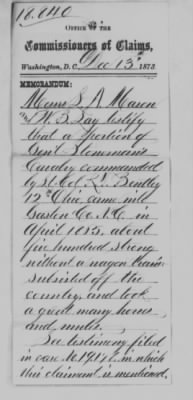 18.040
OFFICE OF THE
Commissioners of Claims,
Washington, D.C. Dec 13th 1873
MEMORANDUM:
A Mason
W. S. Lay testify
that a portion of
Gen'l Stoneman's
Cavalry commanded
by Lt Col Bentley
12th Ohio came into
Gaston Co. N.C. in
April 1865, about
five hundred strong
without a wagon train
subsisted off the
country, and took
a great many horses
and mules.
See testimony filed
in case No in which
this claimant is mentioned.